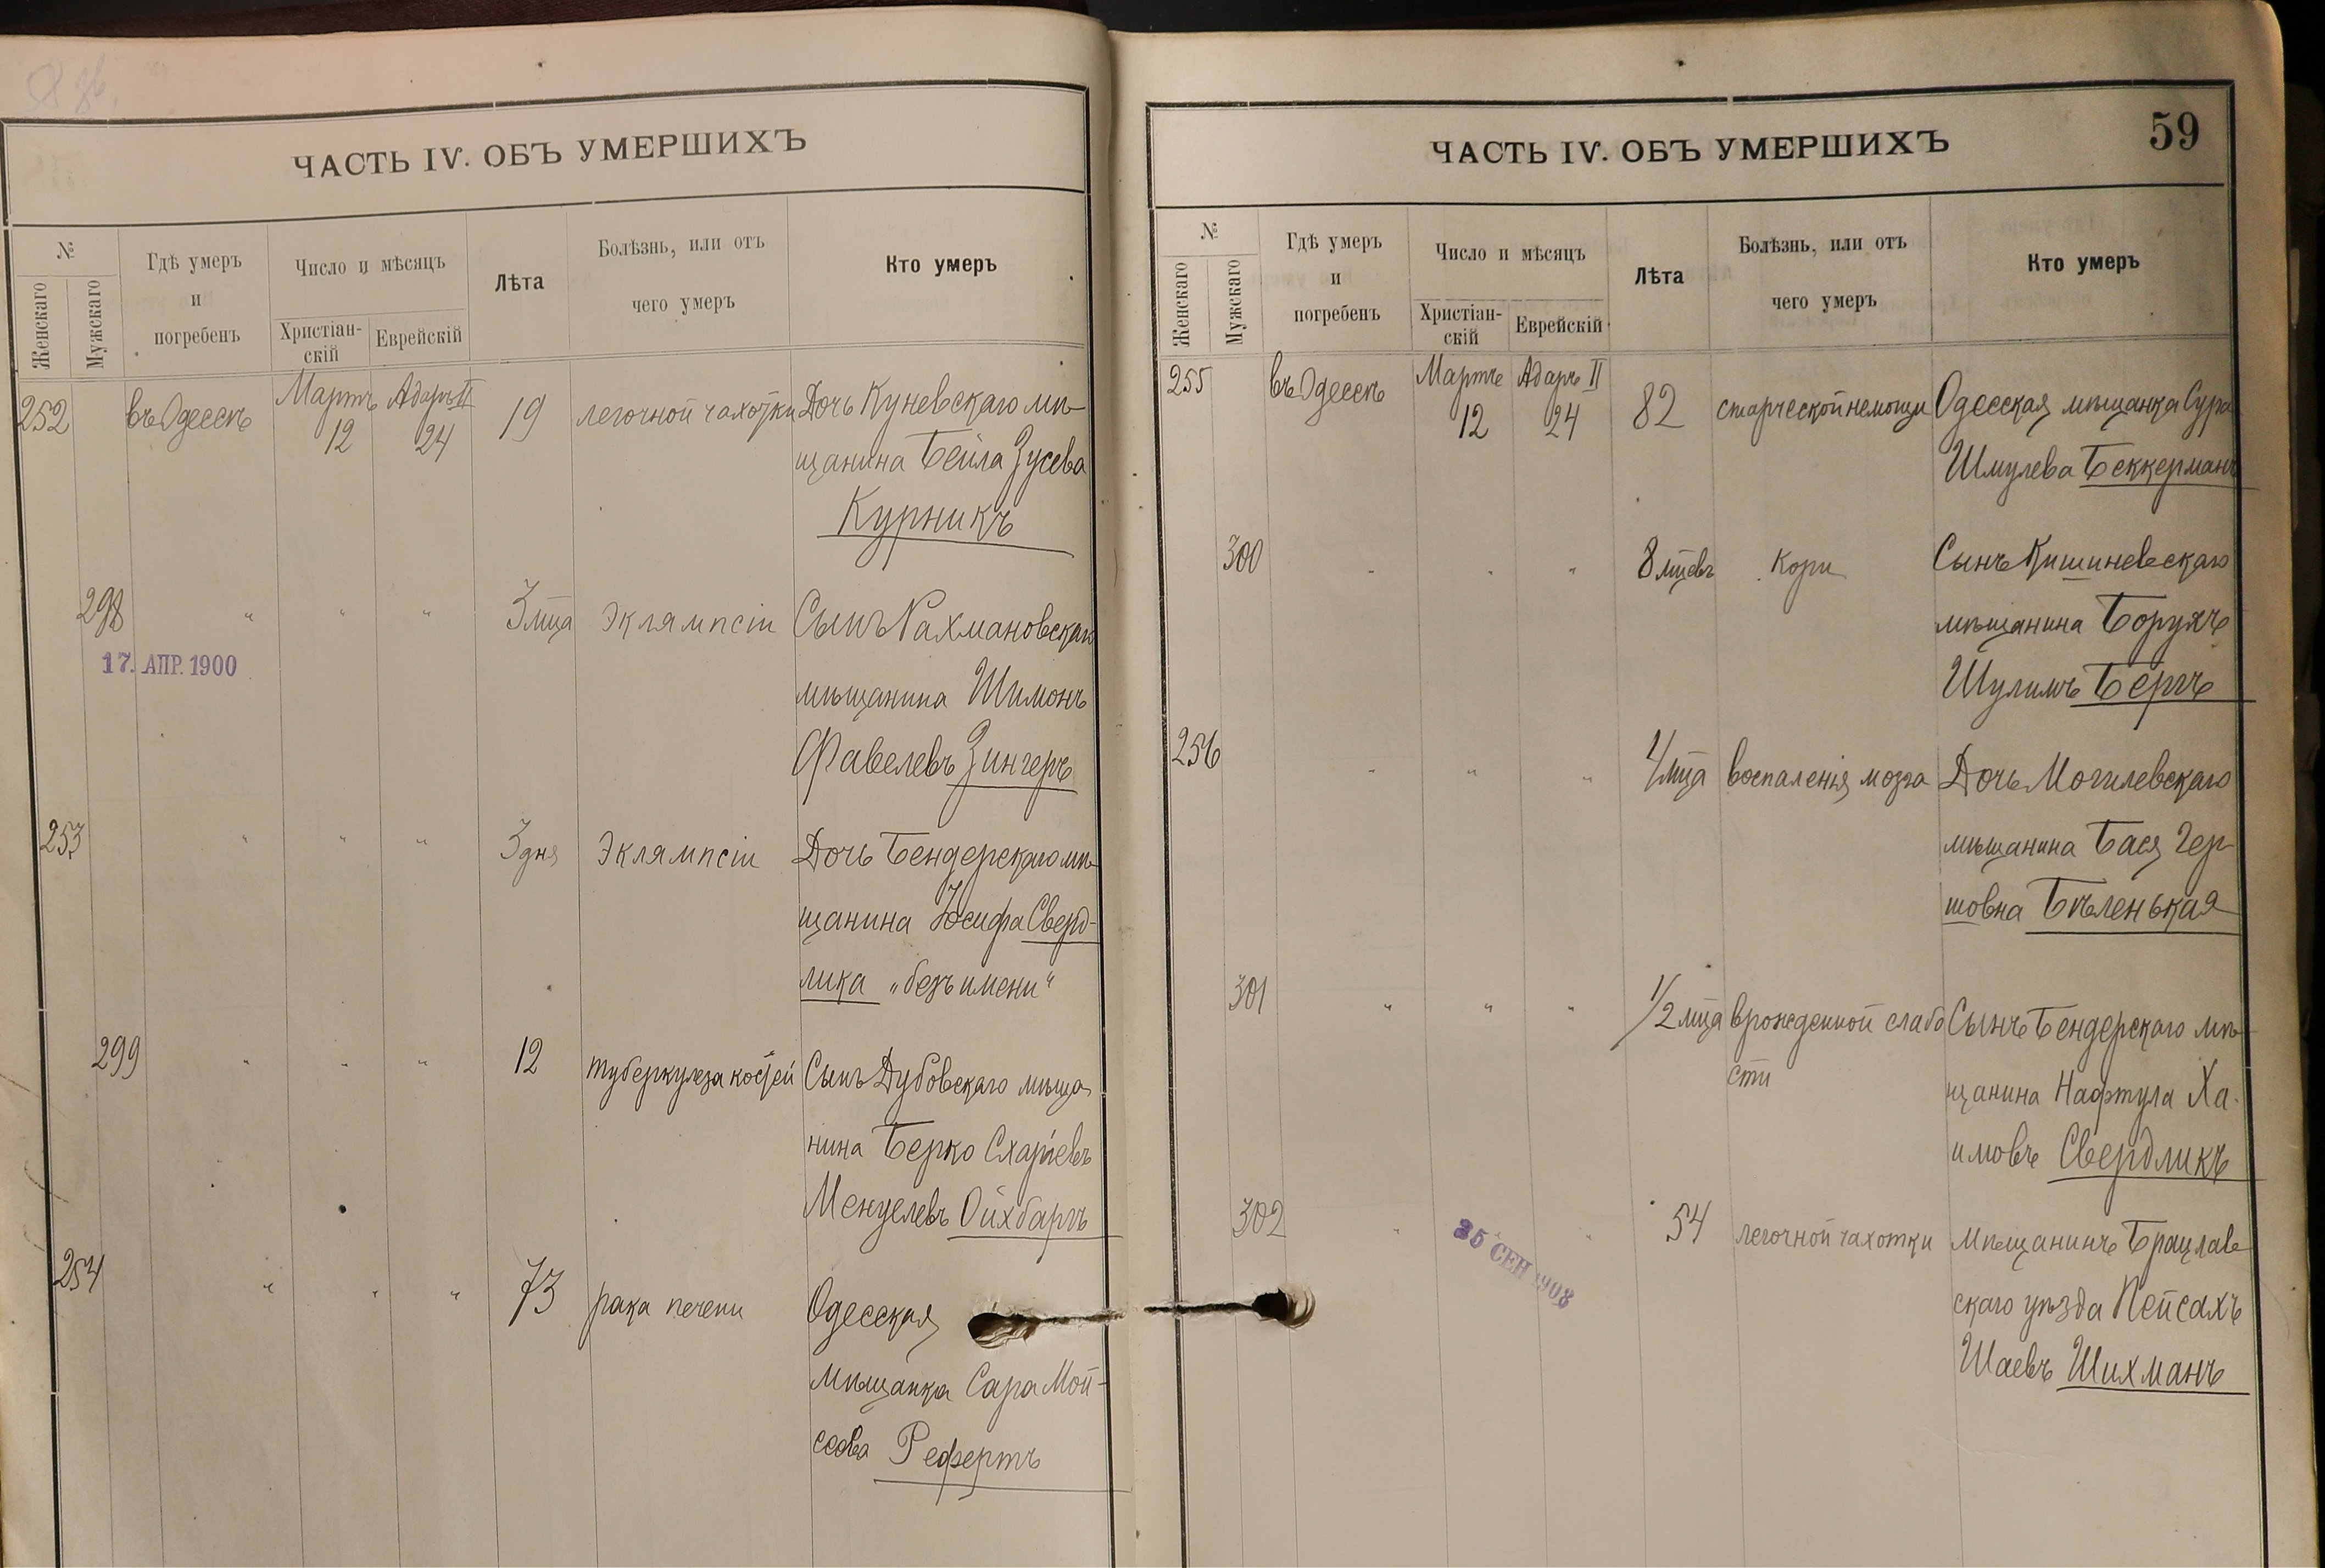 ЧАСТЬ IV. ОБЪ УМЕРШИХЪ
№
Женскаго
Мужскаго
Гдѣ умеръ
и
погребенъ
Число и мѣсяцъ
Христіан-
скій
Еврейскій
Лѣта
Болѣзнь, или отъ
чего умеръ
Кто умеръ
252 въ Одессѣ Мартъ 12 Адаръ II 24 19 легочной чахотки Дочь Куневскаго мѣ-
щанина Бейла Зусева
Курникъ
298 " " " 3 м̃ца Эклямпсіи Сынъ Рахмановскаго
17. АПР. 1900
мѣщанина Шимонъ
Фавелевъ Зингеръ
253 " " " 3 дня Эклямпсіи Дочь Бендерскаго мѣ-
щанина Іосифа Сверд-
лика „безъ имени“
299 " " " 12 туберкулеза костей Сынъ Дубовскаго мѣща-
нина Берко Схаріевъ
Менделевъ Ойхбаргъ
254 " " " 73 рака печени Одесская
мѣщанка Сара Мой-
сеова Рефертъ
ЧАСТЬ IV. ОБЪ УМЕРШИХЪ
59
№
Женскаго
Мужскаго
Гдѣ умеръ
и
погребенъ
Число и мѣсяцъ
Христіан-
скій
Еврейскій
Лѣта
Болѣзнь, или отъ
чего умеръ
Кто умеръ
255 въ Одессѣ Мартъ 12 Адаръ II 24 82 старческой немощи Одесская мѣщанка Сура
Шмулева Беккерманъ
300 " " " 8 м̃цевъ Кори Сынъ Кишиневскаго
мѣщанина Борухъ
Шулимъ Бергъ
256 " " " 1 м̃ца воспаленія мозга Дочь Могилевскаго
мѣщанина Бася Гер-
шовна Бѣленькая
301 " " " 1/2 м̃ца врожденной слабо Сынъ Бендерскаго мѣ-
сти
щанина Нафтула Ха-
имовъ Свердликъ
302 " " 54 легочной чахотки Мѣщанинъ Брацлав
25 СЕН 1908
скаго уѣзда Пейсахъ
Шаевъ Шихманъ